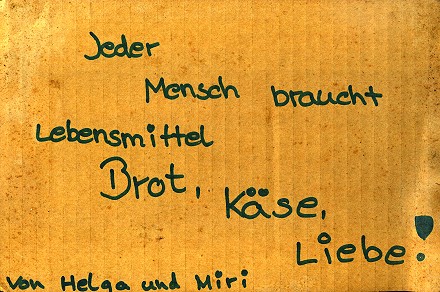 Jeder
Mensch braucht
Lebensmittel
Brot,
Käse,
Liebe!
von Helga und Miri